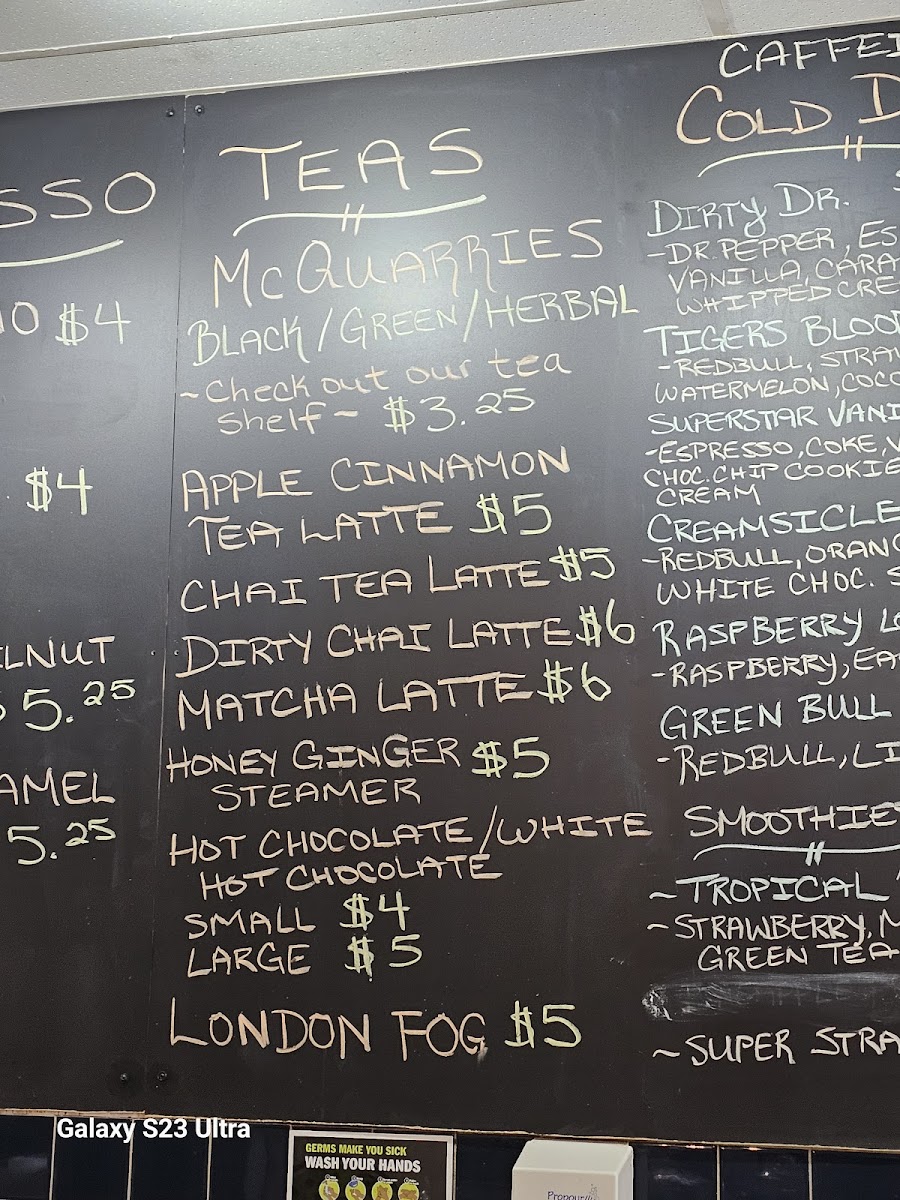 SSO
$4
$4
LNUT
5.25
AMEL
5.25
TEAS
McQUARRIES
BLACK/GREEN/HERBAL
~Check out our tea
shelf~ $3.25
APPLE CINNAMON
TEA LATTE $5
CHAI TEA LATTE $5
DIRTY CHAI LATTE $6
MATCHA LATTE $6
HONEY GINGER $5
STEAMER
HOT CHOCOLATE/WHITE
HOT CHOCOLATE
SMALL $4
LARGE $5
LONDON FOG $5
CAFFEI
COLD D
DIRTY DR.
-DR. PEPPER, ES
VANILLA, CARA
WHIPPED CRE
TIGERS BLOO
-REDBULL, STRAW
WATERMELON, COCO
SUPERSTAR VANI
-ESPRESSO, COKE, V
CHOC. CHIP COOKIE
CREAM
CREAMSICLE
-REDBULL, ORANG
WHITE CHOC. S
RASPBERRY LO
-RASPBERRY, EA
GREEN BULL
-REDBULL, LI
SMOOTHIE
~TROPICAL
~STRAWBERRY, M
GREEN TEA
~SUPER STRA
Galaxy S23 Ultra
GERMS MAKE YOU SICK
WASH YOUR HANDS